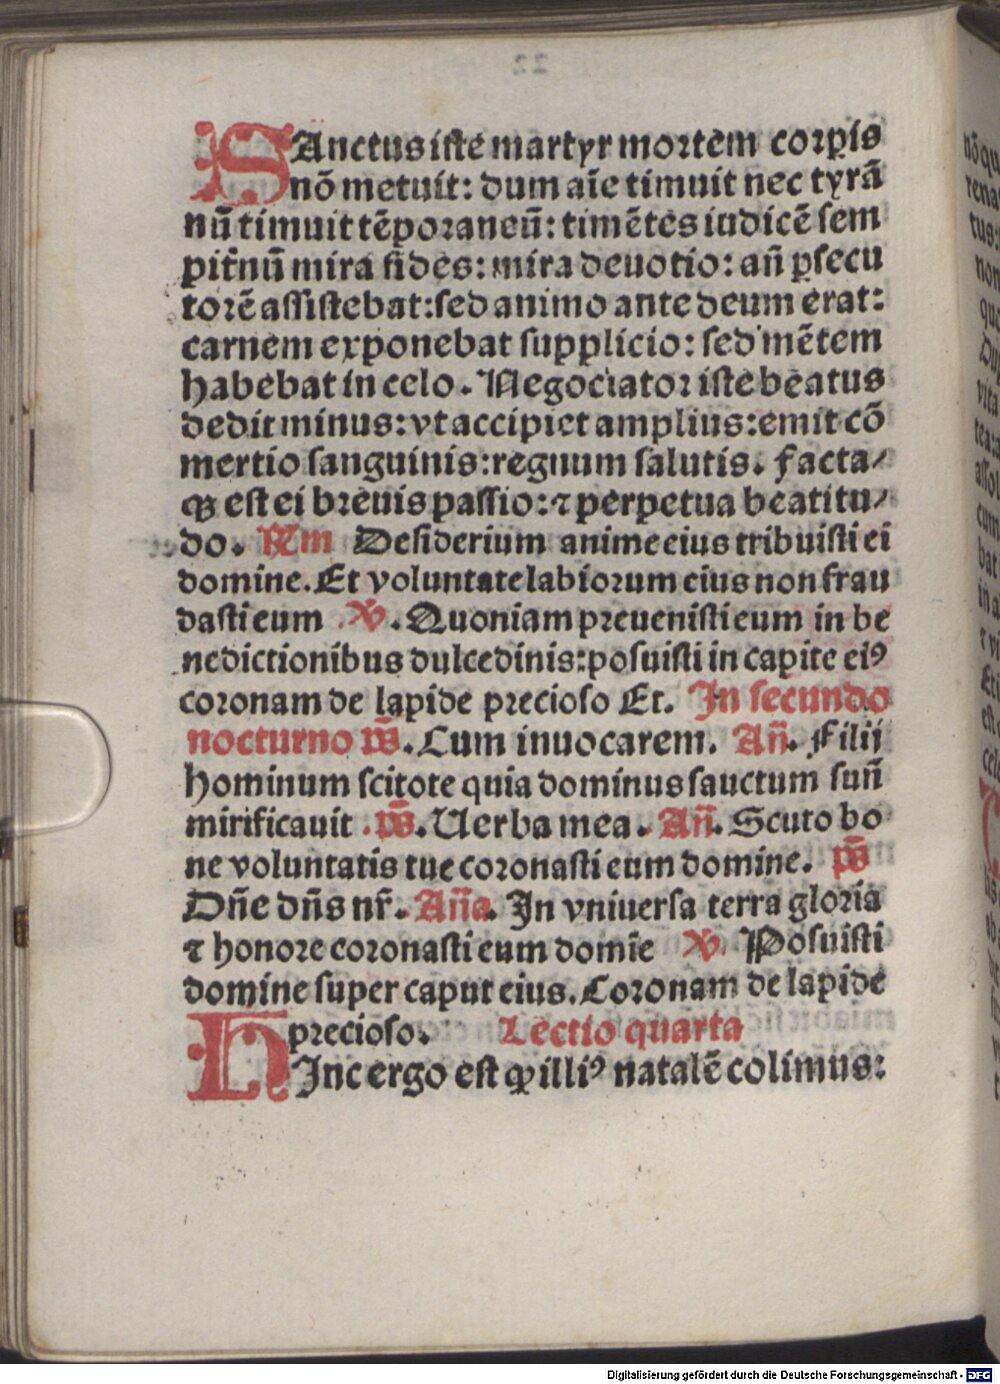 SAnctus iste martyr mortem corꝑis
nõ metuit: dum aĩe timuit nec tyrã
nũ timuit tẽporaneũ: timẽtes iudicẽ sem
pitr̃nũ mira fides: mira deuotio: añ ꝑsecu
torẽ assistebat: sed animo ante deum erat:
carnem exponebat supplicio: sed mẽtem
habebat in celo. Negociator iste beatus
dedit minus: vt accipiet amplius: emit cõ
mertio sanguinis: regnum salutis. facta⸗
qꝫ est ei breuis passio: ⁊ perpetua beatitu⸗
do. Rm Desiderium anime eius tribuisti ei
domine. Et voluntate labiorum eius non frau
dasti eum ℣. Quoniam preuenisti eum in be
nedictionibus dulcedinis: posuisti in capite eiꝰ
coronam de lapide precioso Et. In secundo
nocturno p̃s. Cum inuocarem. Añ. Filij
hominum scitote quia dominus sanctum suũ
mirificauit. p̃s. Uerba mea. Añ. Scuto bo
ne voluntatis tue coronasti eum domine. p̃s
Dñe dñs nr̃. Añа. In vniuersa terra gloria
⁊ honore coronasti eum domĩe ℣. Posuisti
domine super caput eius. Coronam de lapide
precioso. Lectio quarta
HInc ergo est ꝙ illiꝰ natalẽ colimus:
Digitalisierung gefördert durch die Deutsche Forschungsgemeinschaft - DFG